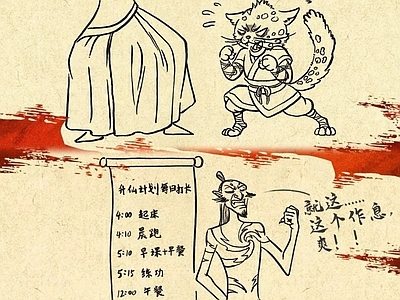 升仙计划每日打卡
4:00 起床
4:10 晨跑
5:10 早课+早餐
5:15 练功
12:00 午餐
就这……
这个作息,
爽!!